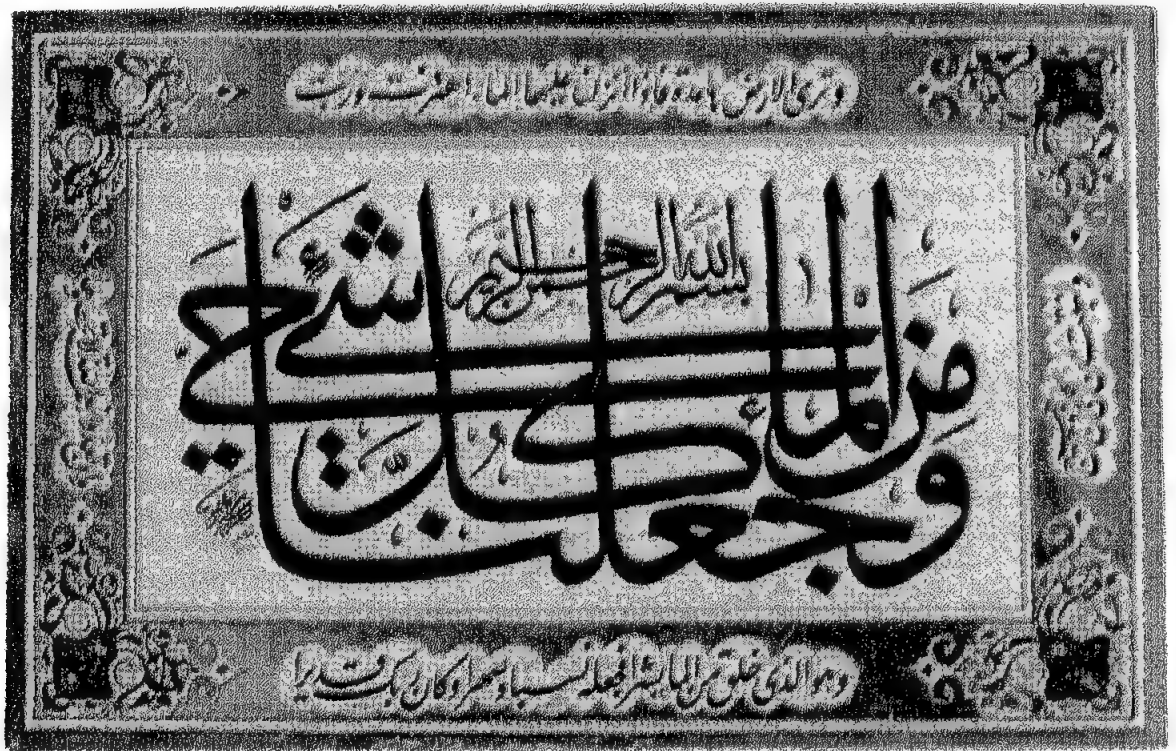 وترى الأرض هامدة فإذا أنزلنا عليها الماء اهتزت وربت
بسم الله الرحمن الرحيم
وجعلنا من الماء كل شئ حي
وهو الذي خلق من الماء بشرا فجعله نسبا وصهرا وكان ربك قديرا